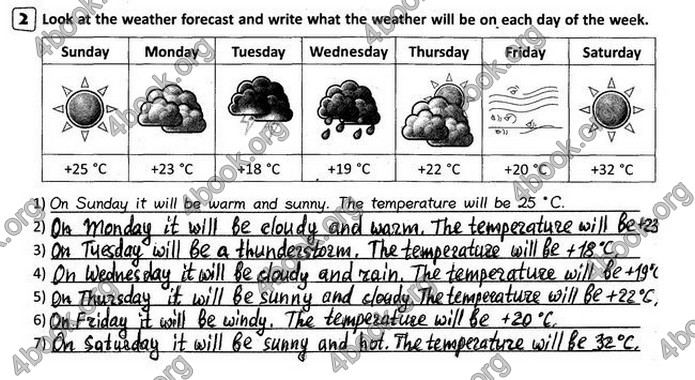 2 Look at the weather forecast and write what the weather will be on each day of the week.
Sunday Monday Tuesday Wednesday Thursday Friday Saturday
+25 °C +23 °C +18 °C +19 °C +22 °C +20 °C +32 °C
1) On Sunday it will be warm and sunny. The temperature will be 25 °C.
2) On Monday it will be cloudy and warm. The temperature will be +23
3) On Tuesday will be a thunderstorm. The temperature will be +18°C.
4) On Wednesday it will be cloudy and rain. The temperature will be +19°C
5) On Thursday it will be sunny and cloudy. The temperature will be +22°C.
6) On Friday it will be windy. The temperature will be +20°C.
7) On Saturday it will be sunny and hot. The temperature will be 32°C.
4book.org